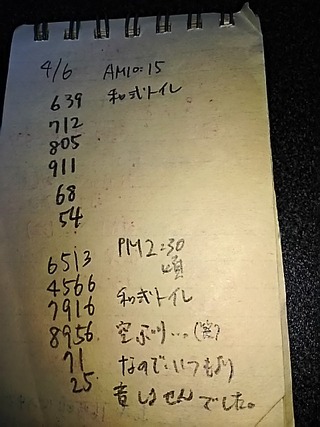 4/6 AM10:15
639 和式トイレ
712
805
911
68
54
PM2:30
6513 頃
4566
7916 和式トイレ
8956 空ぶり…(笑)
71 なのでいつもより
25 音しませんでした。